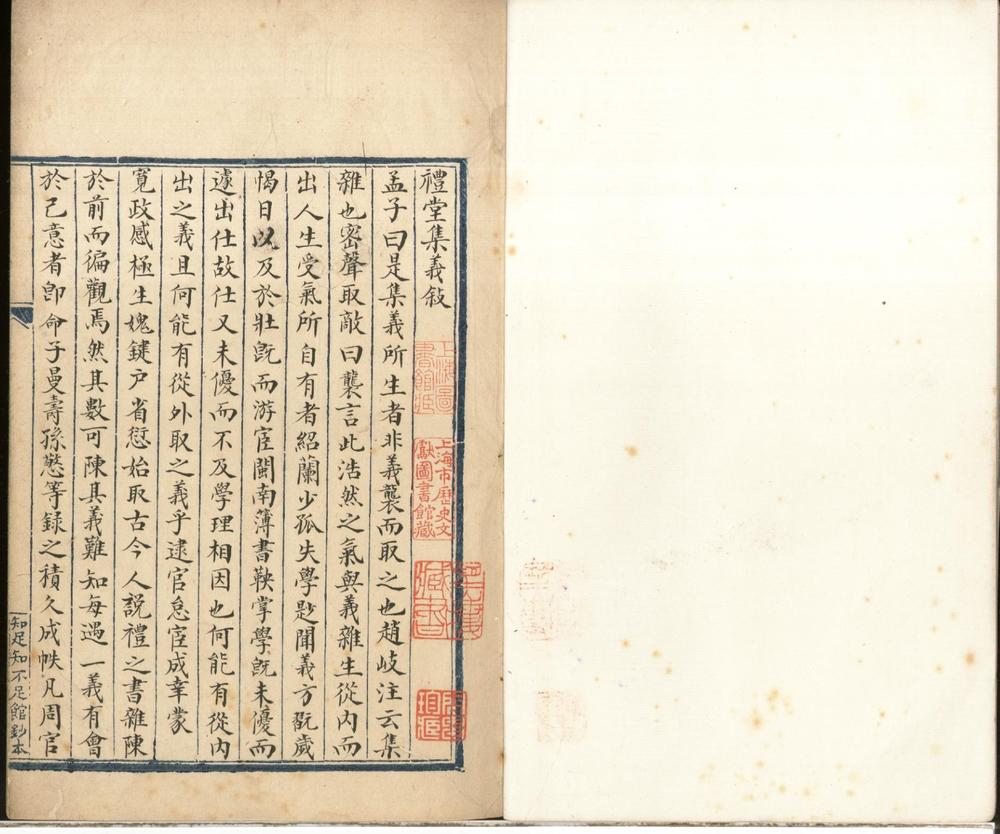 禮堂集義敍
孟子曰是集義所生者非義襲而取之也趙岐注云集
雜也密聲取敵曰襲言此浩然之氣與義雜生從内而
出人生受氣所自有者紹蘭少孤失學尟聞義方翫歲
愒日以及於壯旣而游宦閩南簿書鞅掌學旣未優而
遽出仕故仕又未優而不及學理相因也何能有從内
出之義且何能有從外取之義乎逮官怠宦成幸蒙
寬政感極生媿鍵户省愆始取古今人説禮之書雜陳
於前而徧觀焉然其數可陳其義難知每遇一義有會
於己意者卽命子曼壽孫慤等録之積久成帙凡周官
知足知不足館鈔本
上海圖書館藏
上海市歷史文獻圖書館藏